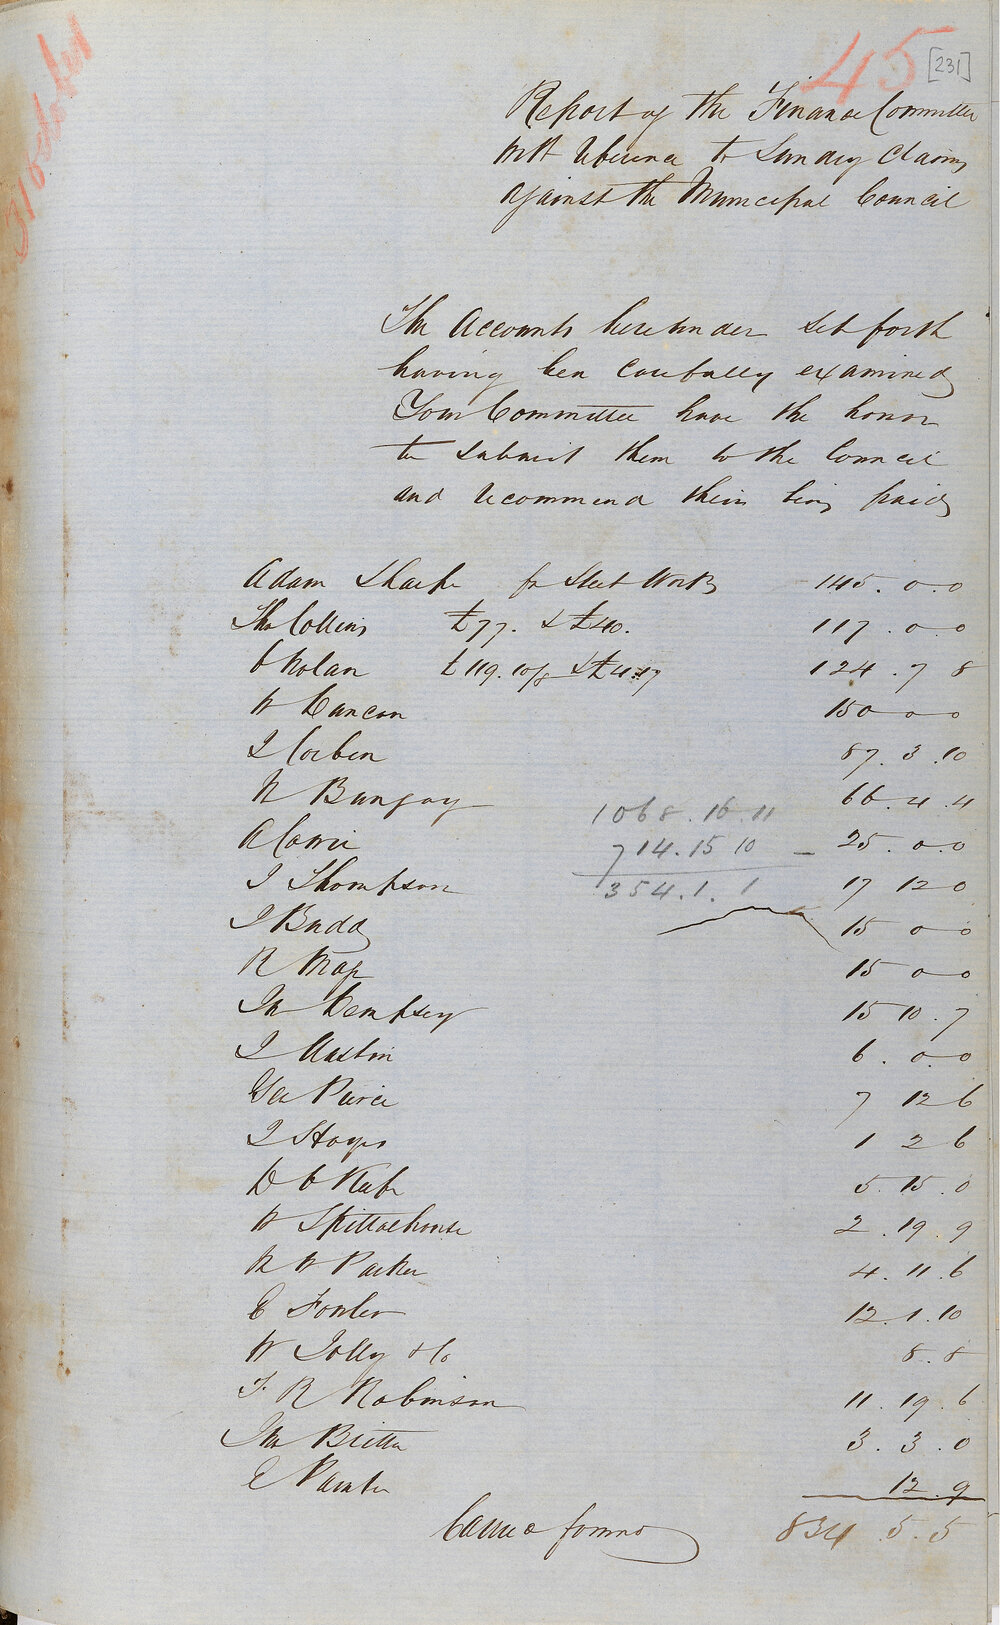 31 October
45
[231]
Report of the Finance Committee
with reference to Sundry Claims
against the Municipal Council
The Accounts hereunder set forth
having been carefully examined
Your Committee have the honor
to submit them to the Council
and recommend their being paid
Adam Sharp for Street Works 145. 0. 0
Thos Collins £77. & £40. 117. 0. 0
C Nolan £119. 10/8 & £4.17 124. 7 8
W Cancon 150 0 0
J Corben 87. 3. 10
N Bungay 66. 4. 4
1068. 16. 11
A Cowie 25. 0. 0
714. 15 10
J Thompson 17 12 0
354. 1. 1
J Budd 15 0 0
R Map 15 0 0
Jn Dempsey 15 10. 7
J Austin 6. 0. 0
Geo Pierce 7 12 6
J Hayes 1 2 6
D C Keefe 5. 15. 0
W Spittlehouse 2. 19 9
R W Parker 4. 11. 6
E Fowler 12. 1. 10
W Jolly & Co 8. 8
T. R Robinson 11. 19. 6
Jno Britter 3. 3. 0
E 12. 9
Carried forward 834 5. 5